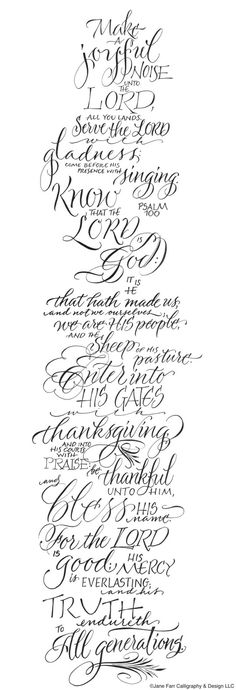 Make
A
joyful
NOISE
UNTO
THE
LORD,
ALL YOU LANDS.
Serve the LORD
with
gladness;
COME BEFORE HIS
PRESENCE WITH
singing.
Know
PSALM
100
THAT THE
LORD
IS
God:
IT IS
HE
that hath made us,
and not we ourselves;
we are HIS people,
AND THE
Sheep
OF HIS
pasture.
Enter into
HIS GATES
with
thanksgiving,
AND INTO
HIS COURTS
WITH
PRAISE:
be
thankful
UNTO HIM,
and
bless
HIS
name.
For the LORD
IS
Good;
HIS
MERCY
is EVERLASTING;
and his
TRUTH
endureth
TO
All generations.
©Jane Farr Calligraphy & Design LLC